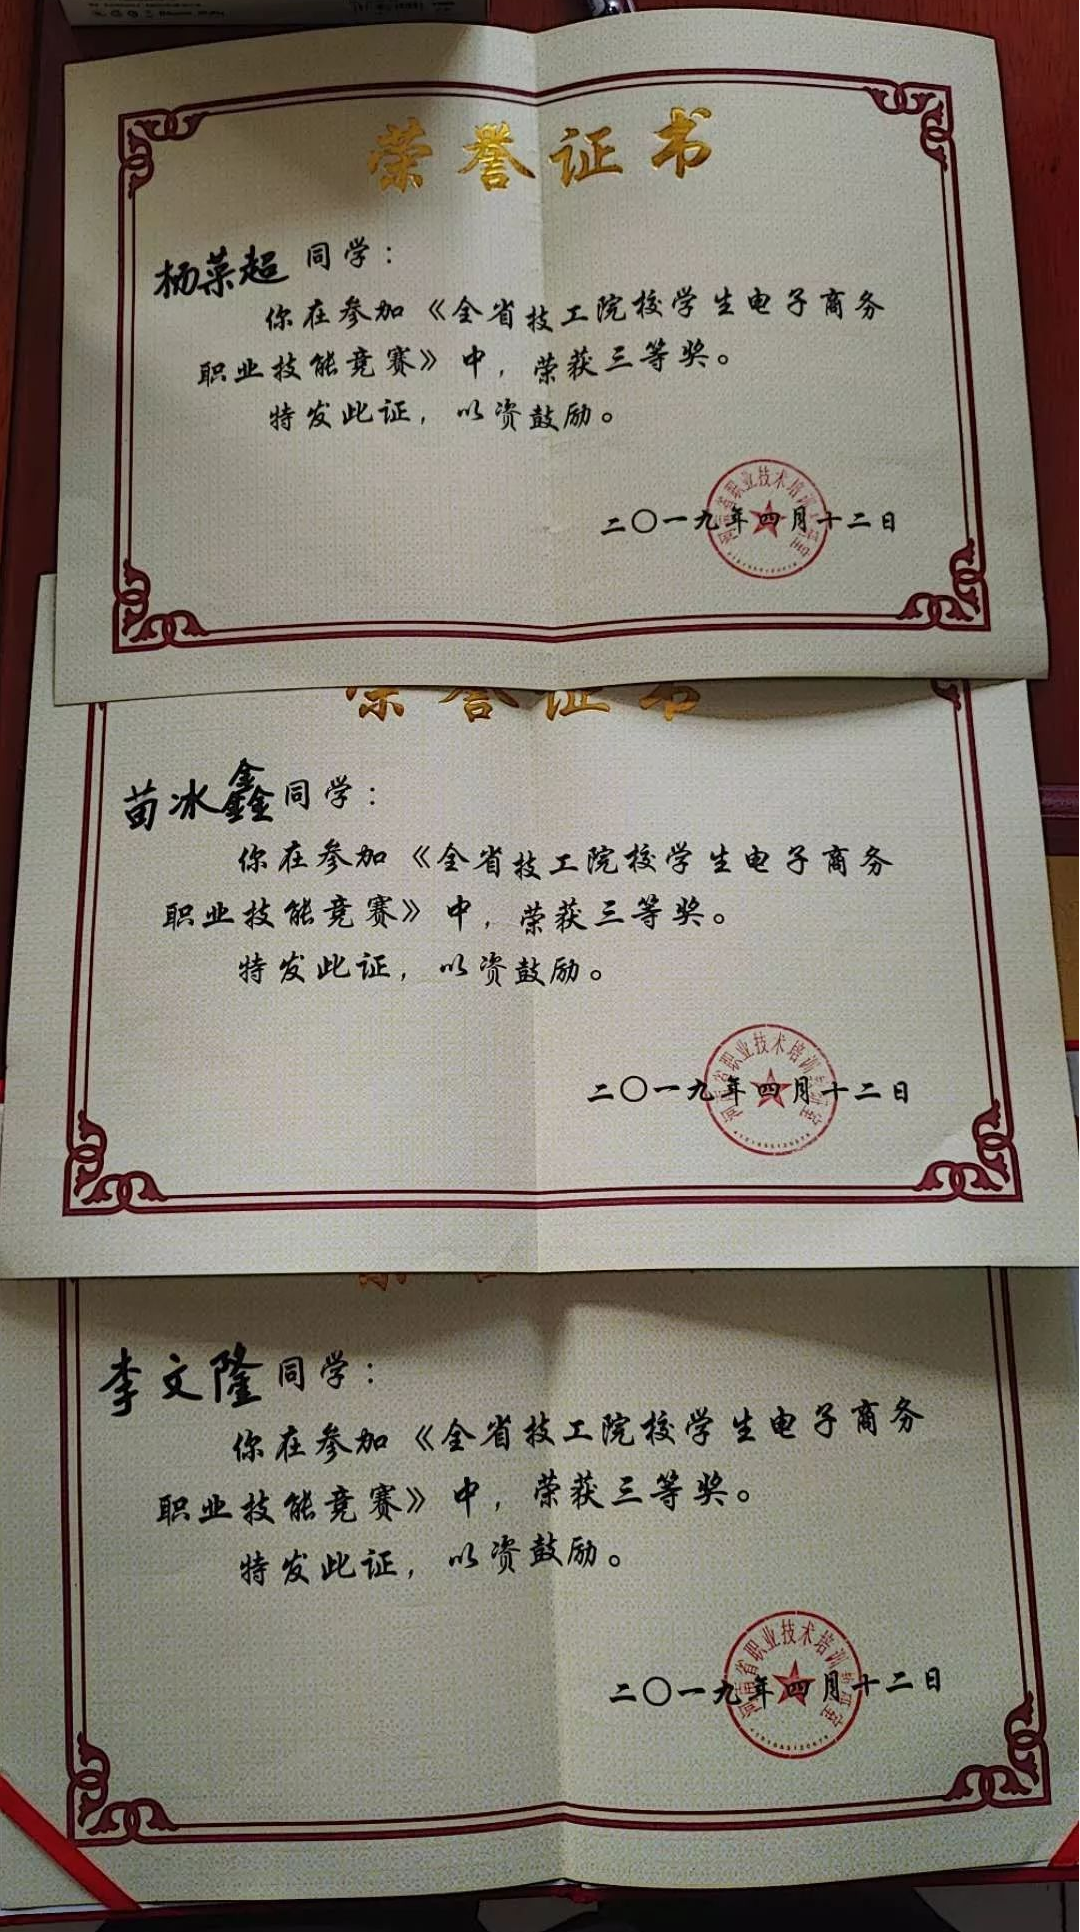 荣誉证书
杨菜超 同学：
你在参加《全省技工院校学生电子商务
职业技能竞赛》中，荣获三等奖。
特发此证，以资鼓励。
河南省职业技术培训教研室
二〇一九年四月十二日
荣誉证书
苗冰鑫 同学：
你在参加《全省技工院校学生电子商务
职业技能竞赛》中，荣获三等奖。
特发此证，以资鼓励。
河南省职业技术培训教研室
二〇一九年四月十二日
李文隆 同学：
你在参加《全省技工院校学生电子商务
职业技能竞赛》中，荣获三等奖。
特发此证，以资鼓励。
河南省职业技术培训教研室
二〇一九年四月十二日